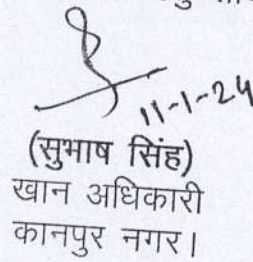 11-1-24
(सुभाष सिंह)
खान अधिकारी
कानपुर नगर।